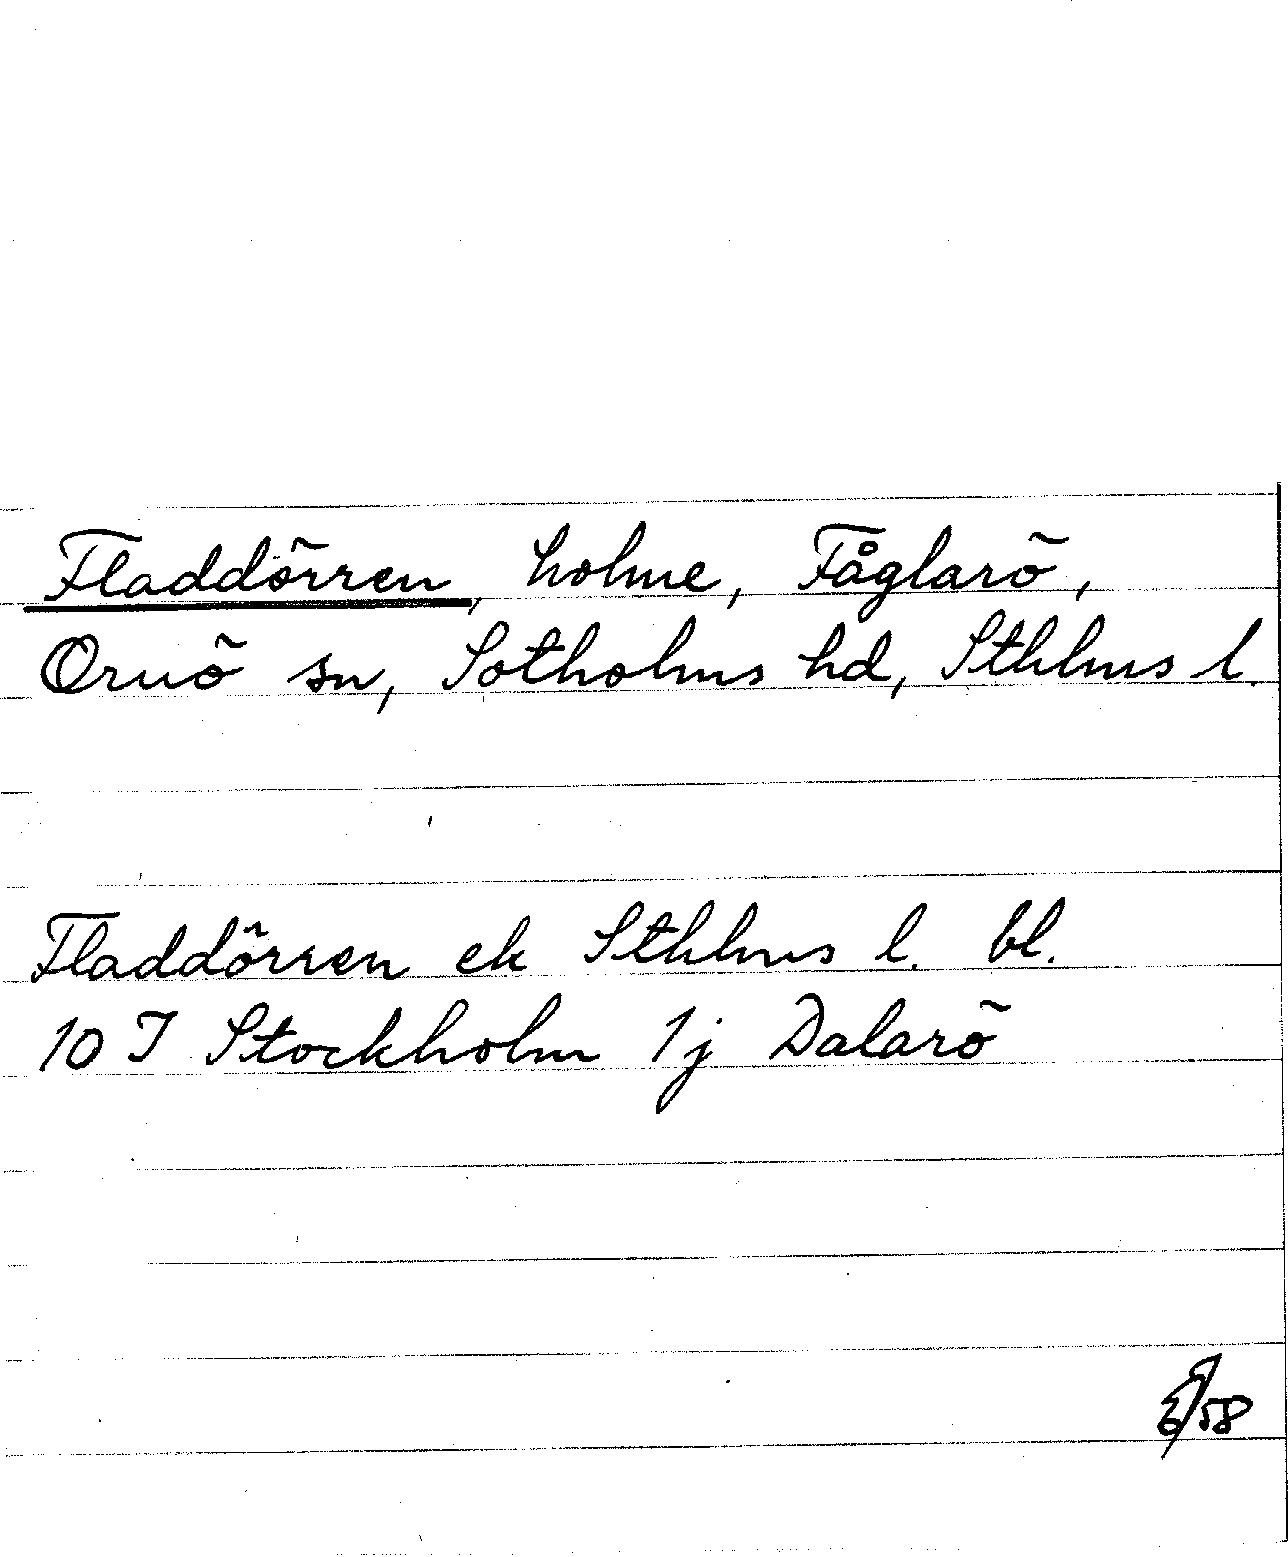 Fladdörren, holme, Fåglarö,
Ornö sn, Sotholms hd, Sthlms l.
Fladdörren ek Sthlms l. bl.
10 I Stockholm 1j Dalarö
/58